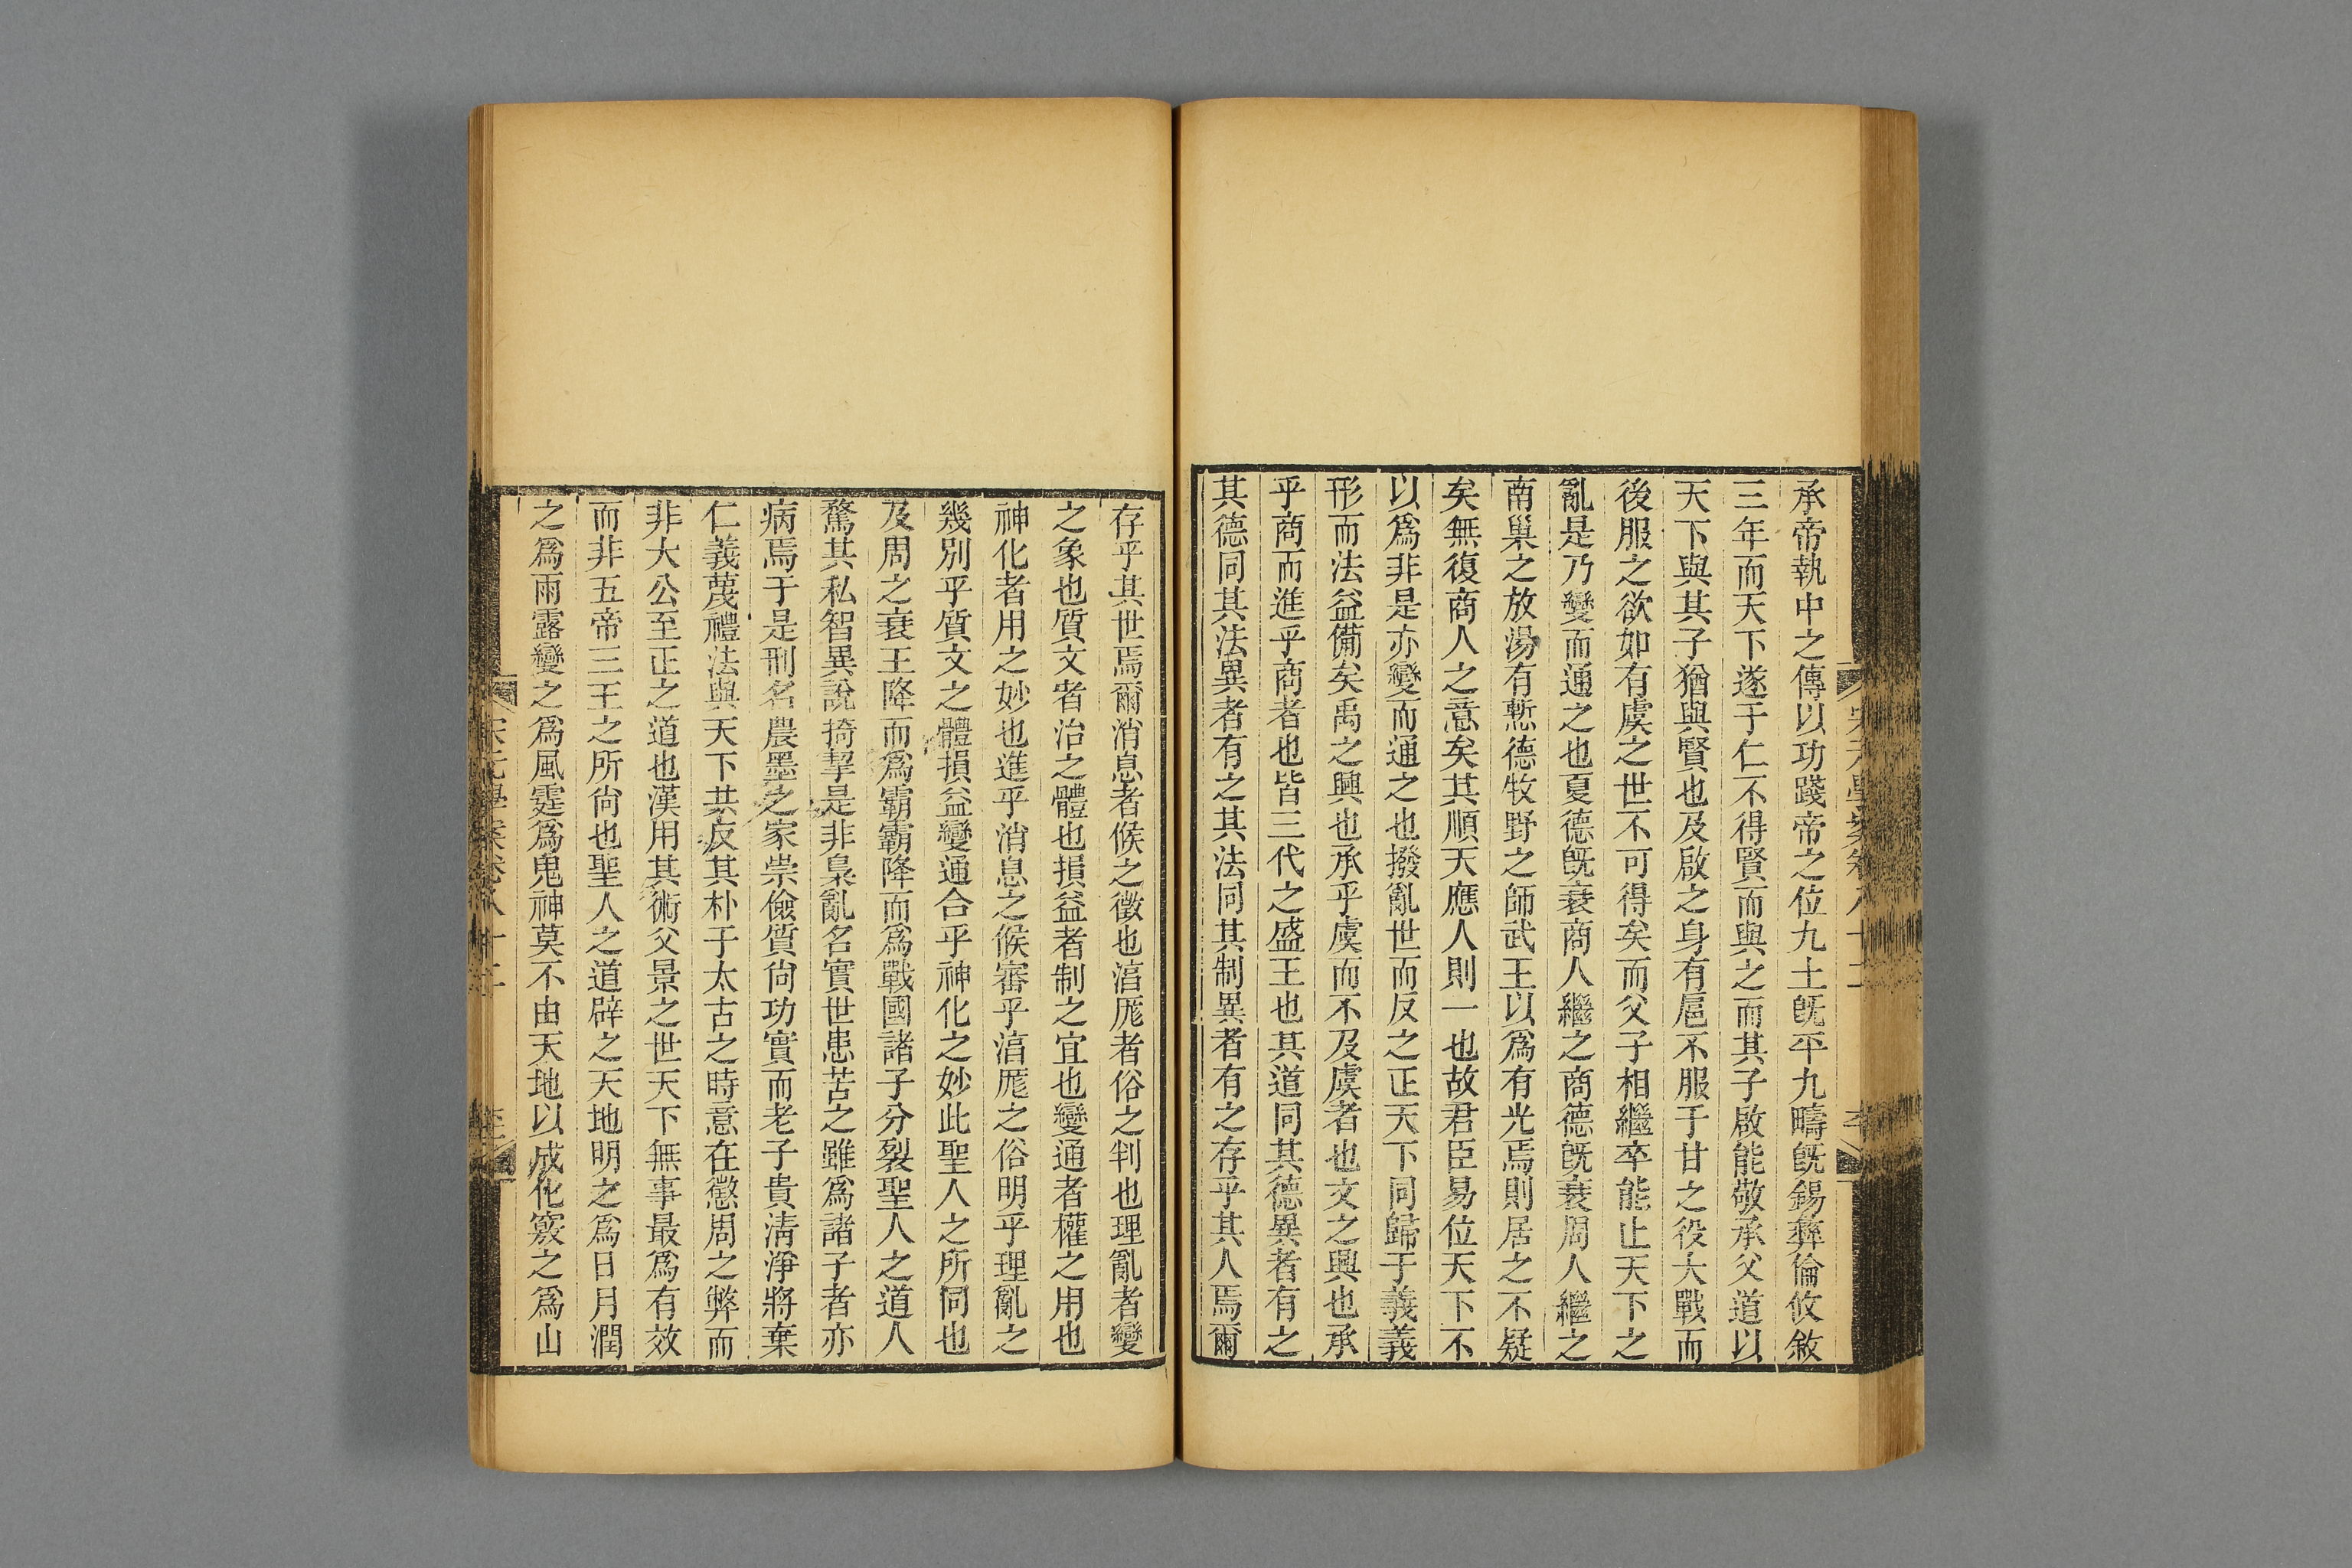 承帝執中之傳以功踐帝之位九土旣平九疇旣錫彝倫攸敘
三年而天下遂于仁不得賢而與之而其子啟能敬承父道以
天下與其子猶與賢也及啟之身有扈不服于甘之役大戰而
後服之欲如有虞之世不可得矣而父子相繼卒能止天下之
亂是乃變而通之也夏德旣衰商人繼之商德旣衰周人繼之
南巢之放湯有慙德牧野之師武王以爲有光焉則居之不疑
矣無復商人之意矣其順天應人則一也故君臣易位天下不
以爲非是亦變而通之也撥亂世而反之正天下同歸于義義
形而法益備矣禹之興也承乎虞而不及虞者也文之興也承
乎商而進乎商者也皆三代之盛王也其道同其德異者有之
其德同其法異者有之其法同其制異者有之存乎其人焉爾
存乎其世焉爾消息者候之徵也湻厖者俗之判也理亂者變
之象也質文者治之體也損益者制之宜也變通者權之用也
神化者用之妙也進乎消息之候審乎湻厖之俗明乎理亂之
幾別乎質文之體損益變通合乎神化之妙此聖人之所同也
及周之衰王降而爲霸霸降而爲戰國諸子分裂聖人之道人
騖其私智異說掎挈是非梟亂名實世患苦之雖爲諸子者亦
病焉于是刑名農墨之家崇儉質尙功實而老子貴清淨將棄
仁義蔑禮法與天下共反其朴于太古之時意在懲周之弊而
非大公至正之道也漢用其術父景之世天下無事最爲有效
而非五帝三王之所尙也聖人之道辟之天地明之爲日月潤
之爲雨露變之爲風霆爲鬼神莫不由天地以成化竅之爲山
宋元學案卷八十二